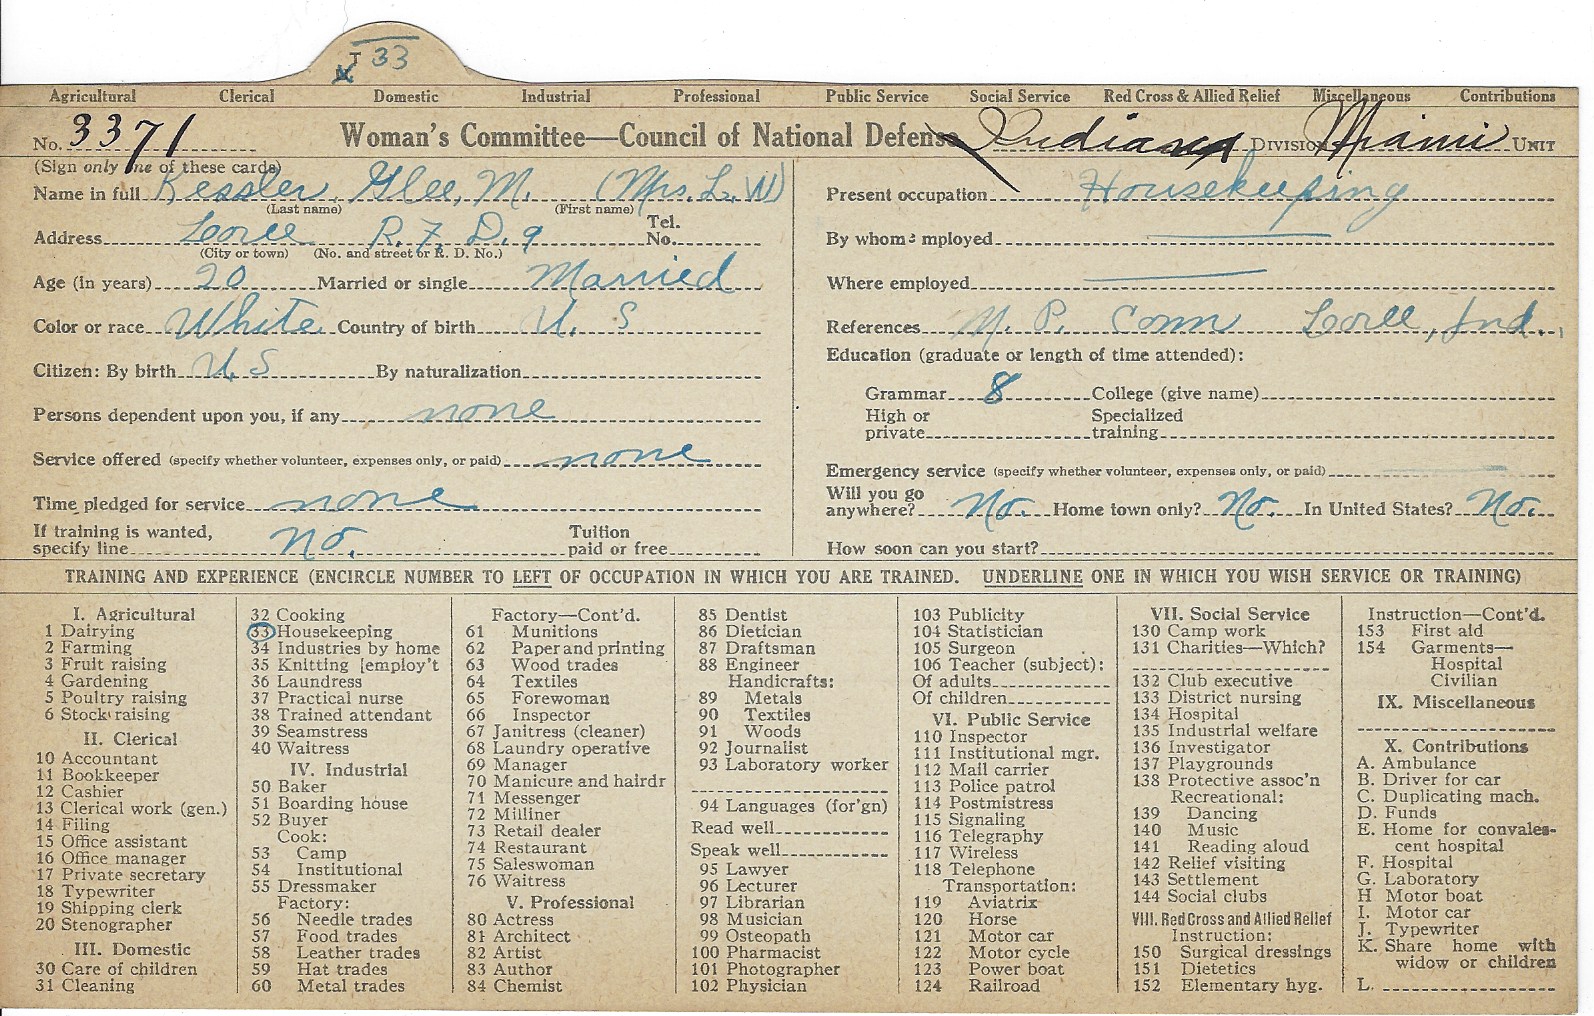 T 33
Agricultural Clerical Domestic Industrial Professional Public Service Social Service Red Cross & Allied Relief Miscellaneous Contributions
No. 3371 Woman's Committee—Council of National Defense Indiana DIVISION Miami UNIT
(Sign only one of these cards)
Name in full Kessler, Glee, M. (Mrs. L. W)
(Last name) (First name)
Address Loree R. F. D. 9 Tel. No.
(City or town) (No. and street or R. D. No.)
Age (in years) 20 Married or single Married
Color or race White Country of birth U. S
Citizen: By birth U. S By naturalization
Persons dependent upon you, if any none
Service offered (specify whether volunteer, expenses only, or paid) none
Time pledged for service none
If training is wanted, specify line No. Tuition paid or free
Present occupation Housekeeping
By whom employed
Where employed
References N. P. Conn Loree, Ind.
Education (graduate or length of time attended):
Grammar 8 College (give name)
High or private Specialized training
Emergency service (specify whether volunteer, expenses only, or paid)
Will you go anywhere? No. Home town only? No. In United States? No.
How soon can you start?
TRAINING AND EXPERIENCE (ENCIRCLE NUMBER TO LEFT OF OCCUPATION IN WHICH YOU ARE TRAINED. UNDERLINE ONE IN WHICH YOU WISH SERVICE OR TRAINING)
I. Agricultural
1 Dairying
2 Farming
3 Fruit raising
4 Gardening
5 Poultry raising
6 Stock raising
II. Clerical
10 Accountant
11 Bookkeeper
12 Cashier
13 Clerical work (gen.)
14 Filing
15 Office assistant
16 Office manager
17 Private secretary
18 Typewriter
19 Shipping clerk
20 Stenographer
III. Domestic
30 Care of children
31 Cleaning
32 Cooking
33 Housekeeping
34 Industries by home
35 Knitting [employ't
36 Laundress
37 Practical nurse
38 Trained attendant
39 Seamstress
40 Waitress
IV. Industrial
50 Baker
51 Boarding house
52 Buyer
Cook:
53 Camp
54 Institutional
55 Dressmaker
Factory:
56 Needle trades
57 Food trades
58 Leather trades
59 Hat trades
60 Metal trades
Factory—Cont'd.
61 Munitions
62 Paper and printing
63 Wood trades
64 Textiles
65 Forewoman
66 Inspector
67 Janitress (cleaner)
68 Laundry operative
69 Manager
70 Manicure and hairdr
71 Messenger
72 Milliner
73 Retail dealer
74 Restaurant
75 Saleswoman
76 Waitress
V. Professional
80 Actress
81 Architect
82 Artist
83 Author
84 Chemist
85 Dentist
86 Dietician
87 Draftsman
88 Engineer
Handicrafts:
89 Metals
90 Textiles
91 Woods
92 Journalist
93 Laboratory worker
94 Languages (for'gn)
Read well
Speak well
95 Lawyer
96 Lecturer
97 Librarian
98 Musician
99 Osteopath
100 Pharmacist
101 Photographer
102 Physician
103 Publicity
104 Statistician
105 Surgeon
106 Teacher (subject):
Of adults
Of children
VI. Public Service
110 Inspector
111 Institutional mgr.
112 Mail carrier
113 Police patrol
114 Postmistress
115 Signaling
116 Telegraphy
117 Wireless
118 Telephone
Transportation:
119 Aviatrix
120 Horse
121 Motor car
122 Motor cycle
123 Power boat
124 Railroad
VII. Social Service
130 Camp work
131 Charities—Which?
132 Club executive
133 District nursing
134 Hospital
135 Industrial welfare
136 Investigator
137 Playgrounds
138 Protective assoc'n
Recreational:
139 Dancing
140 Music
141 Reading aloud
142 Relief visiting
143 Settlement
144 Social clubs
VIII. Red Cross and Allied Relief
Instruction:
150 Surgical dressings
151 Dietetics
152 Elementary hyg.
Instruction—Cont'd.
153 First aid
154 Garments—
Hospital
Civilian
IX. Miscellaneous
X. Contributions
A. Ambulance
B. Driver for car
C. Duplicating mach.
D. Funds
E. Home for convales-
cent hospital
F. Hospital
G. Laboratory
H Motor boat
I. Motor car
J. Typewriter
K. Share home with
widow or children
L.